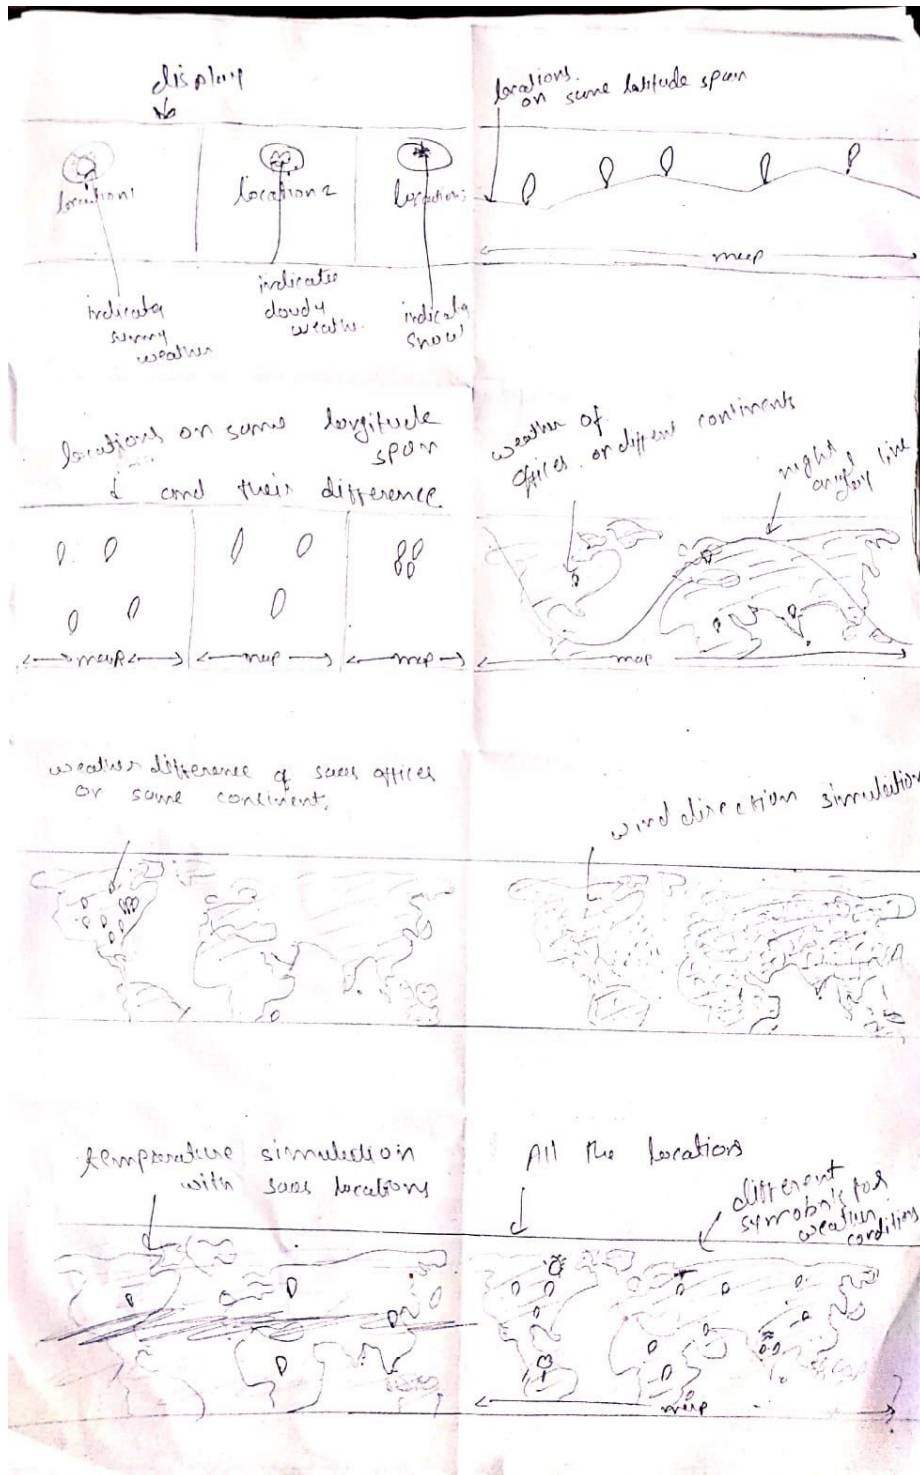 display
location1
location 2
location3
indicates
sunny
weather
indicates
cloudy
weathe.
indicates
snow
locations.
on same latitude span
map
locations on same longitude
span
and their difference
map
map
map
weather of
offices on different continents
night
line
map
weather difference of saas offices
on same continent.
wind direction simulation
temperature simulation
with saas locations
All the locations
different
for
weather
conditions
map